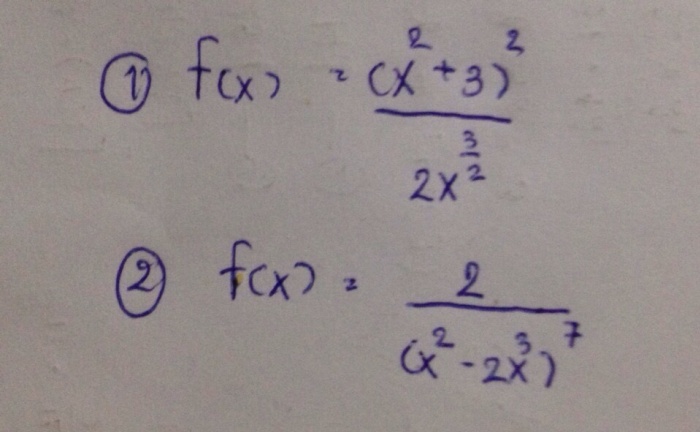 ① f(x) = (x² + 3)²
2x^(3/2)
② f(x) = 2
(x² - 2x³)⁷